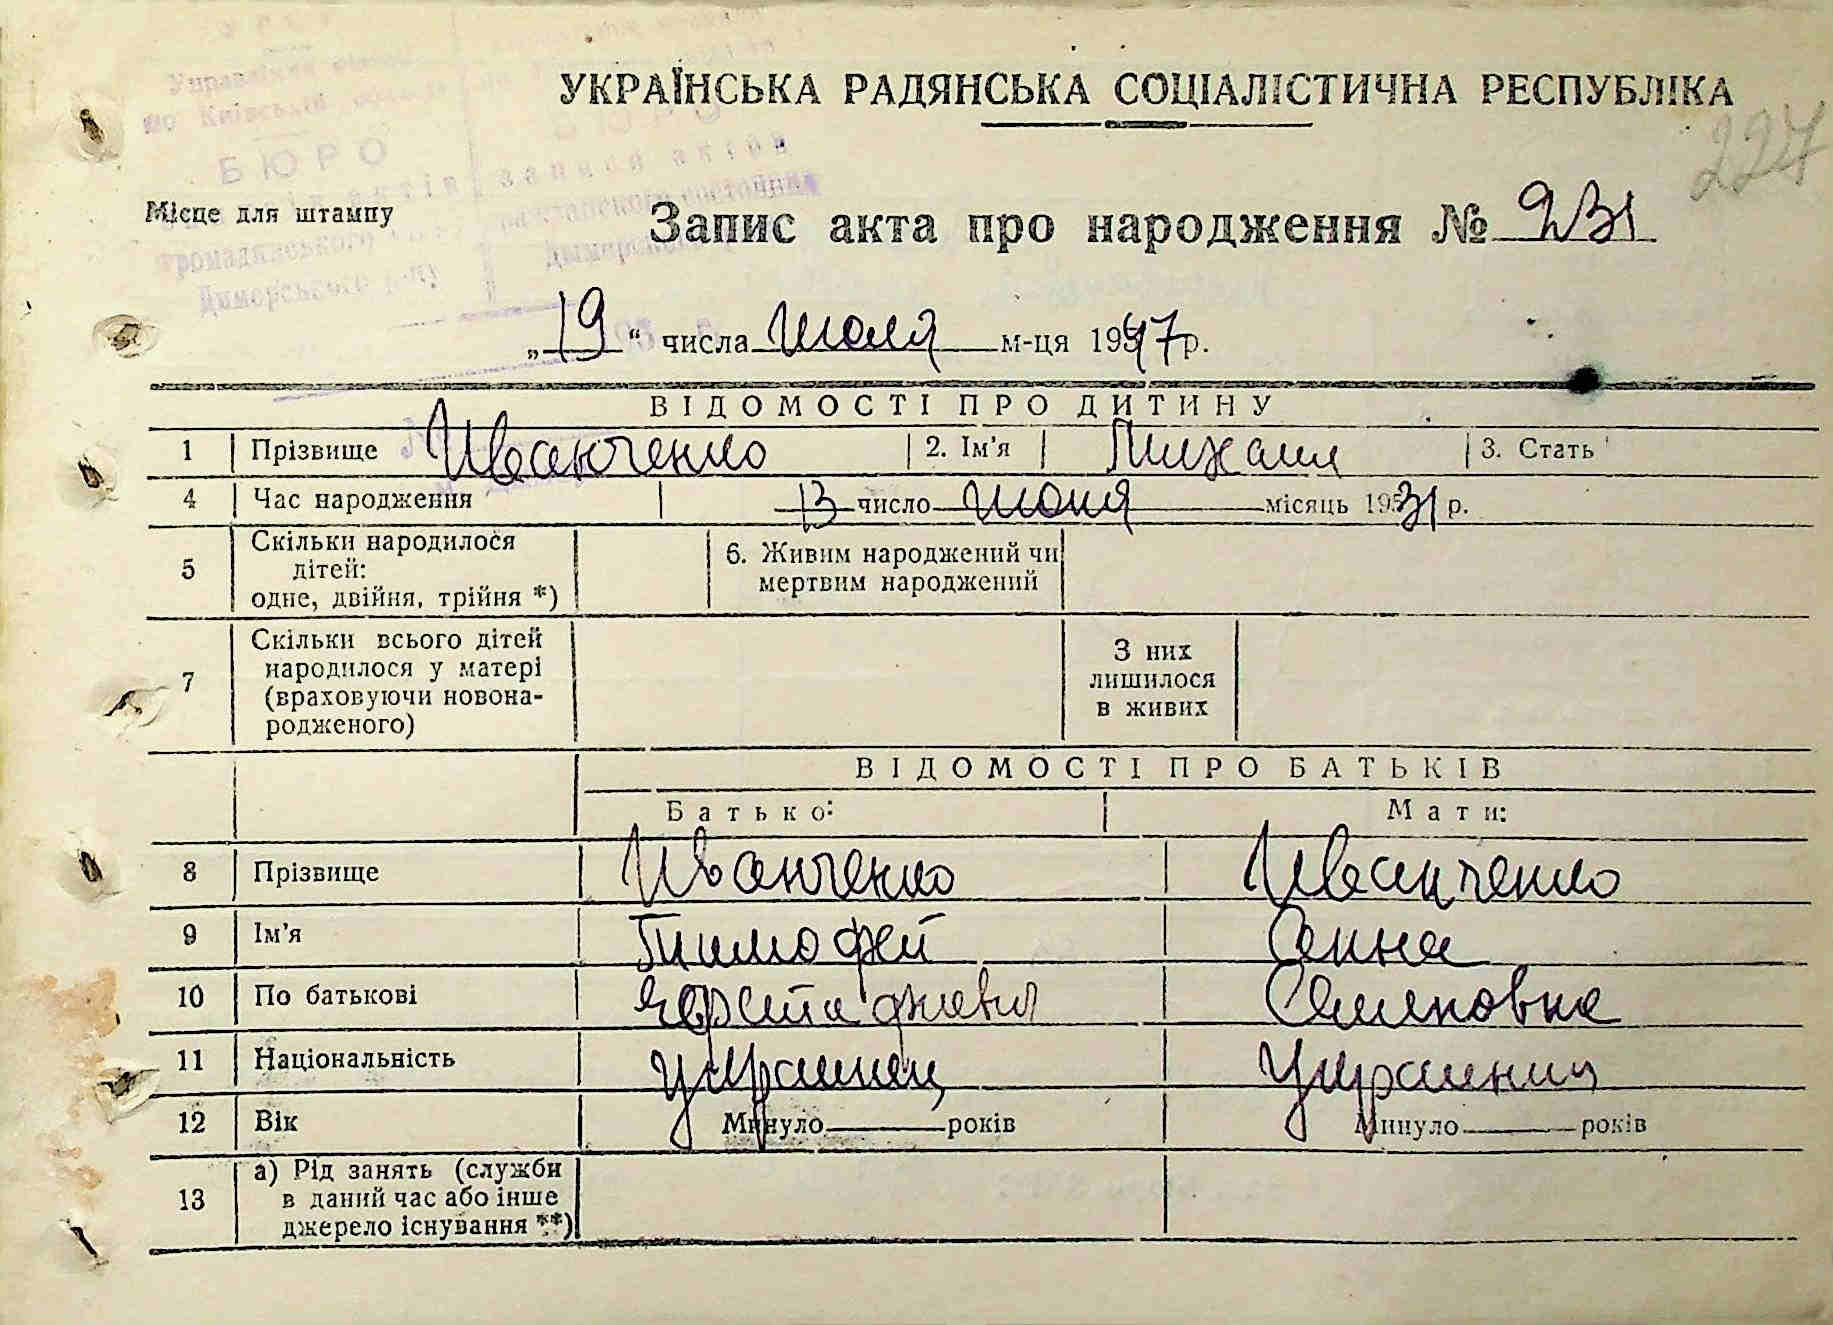 УКРАЇНСЬКА РАДЯНСЬКА СОЦІАЛІСТИЧНА РЕСПУБЛІКА
227
БЮРО
Місце для штампу
Запис акта про народження № 231
„19“ числа Июля м-ця 1947 р.
ВІДОМОСТІ ПРО ДИТИНУ
1 Прізвище Иванченко 2. Ім'я Михаил 3. Стать
4 Час народження 13 число Июня місяць 1931 р.
5 Скільки народилося дітей: одне, двійня, трійня *) 6. Живим народжений чи мертвим народжений
7 Скільки всього дітей народилося у матері (враховуючи новонародженого) З них лишилося в живих
ВІДОМОСТІ ПРО БАТЬКІВ
Батько: Мати:
8 Прізвище Иванченко Иванченко
9 Ім'я Тимофей Анна
10 По батькові Семеновна
11 Національність украинец Украинка
12 Вік Минуло років Минуло років
13 а) Рід занять (служби в даний час або інше джерело існування **)